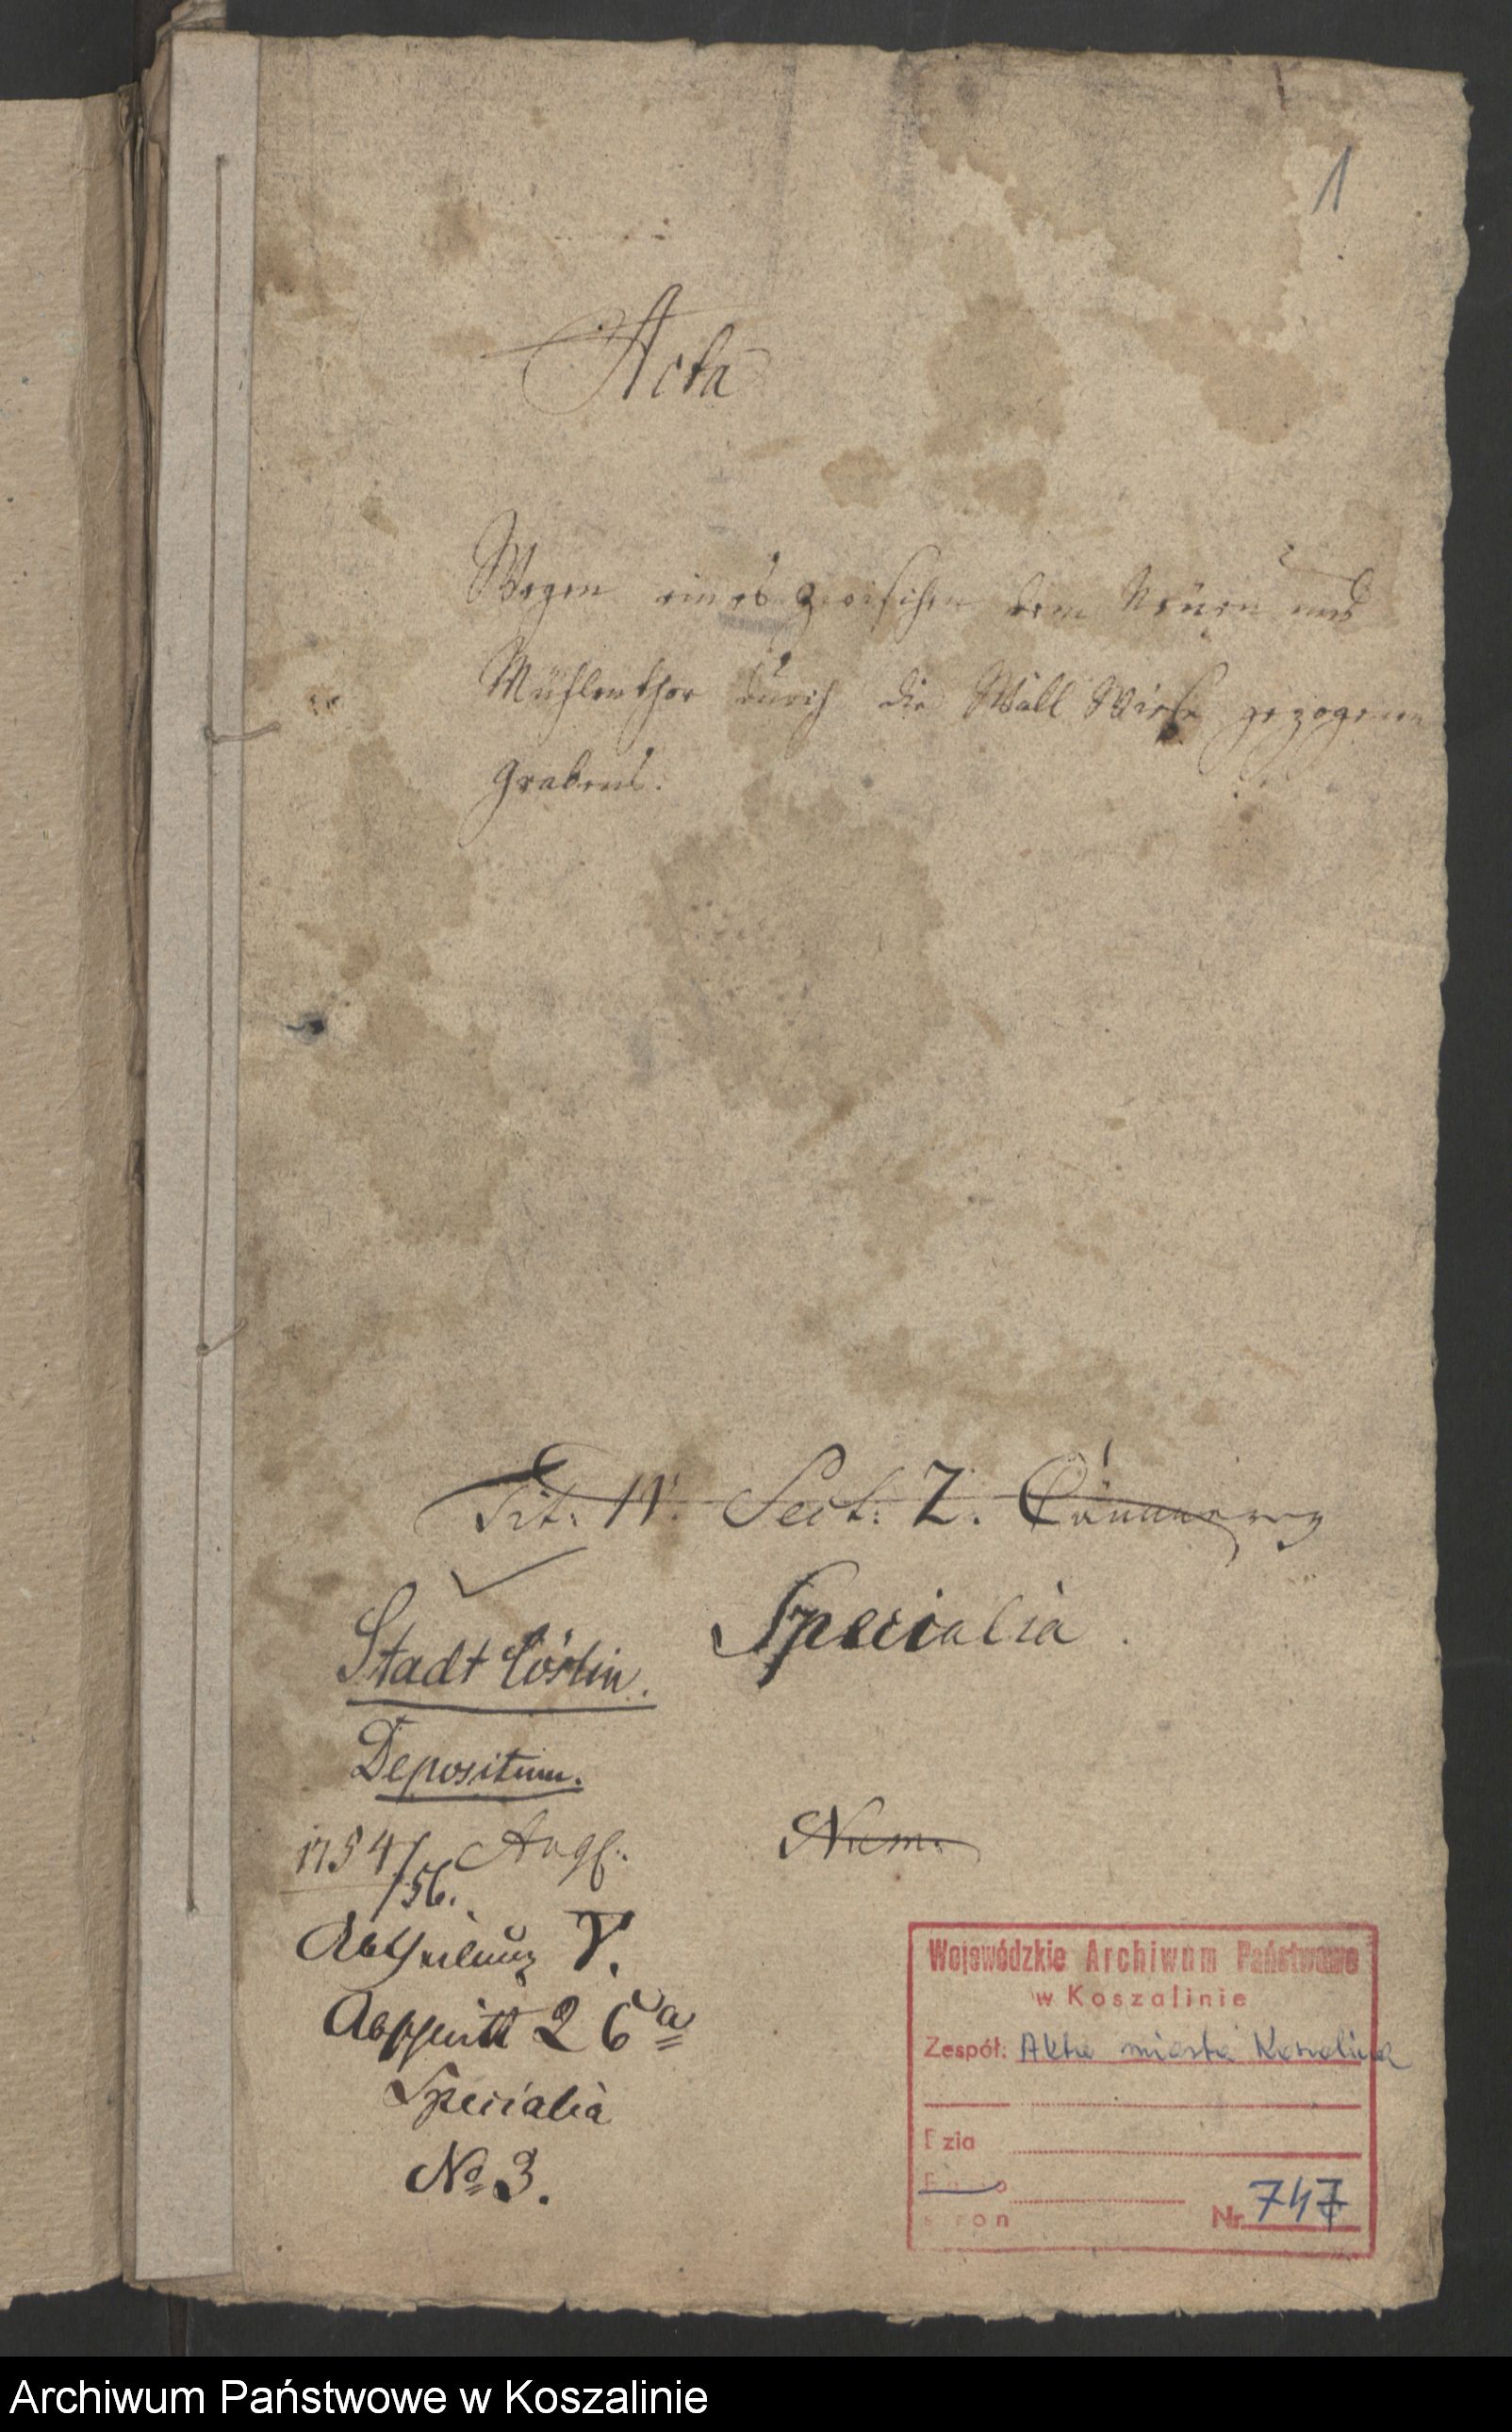 1
Acta
Wegen eines zwischen dem Neuen und
Mühlenthor durch die Wall Wiese gezogenen
Grabens.
Tit: IV. Sect: 2. Cämmerey
Specialia.
Stadt Cöslin.
Depositum.
1754/56. Angf:
Num:
Abtheilung V.
Abschnitt 26a
Specialia
No 3.
Wojewódzkie Archiwum Państwowe
w Koszalinie
Zespół: Akta miasta Koszalina
Dzia
stron
Nr 747
Archiwum Państwowe w Koszalinie